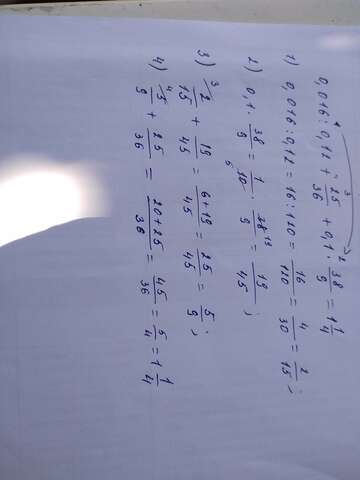 0,016 : 0,12 + 25/36 + 0,1 · 38/9 = 1 1/4
1) 0,016 : 0,12 = 16 : 120 = 16/120 = 4/30 = 2/15;
2) 0,1 · 38/9 = 1/10 · 38/9 = 19/45;
3) 2/15 + 19/45 = 6+19/45 = 25/45 = 5/9;
4) 5/9 + 25/36 = 20+25/36 = 45/36 = 5/4 = 1 1/4